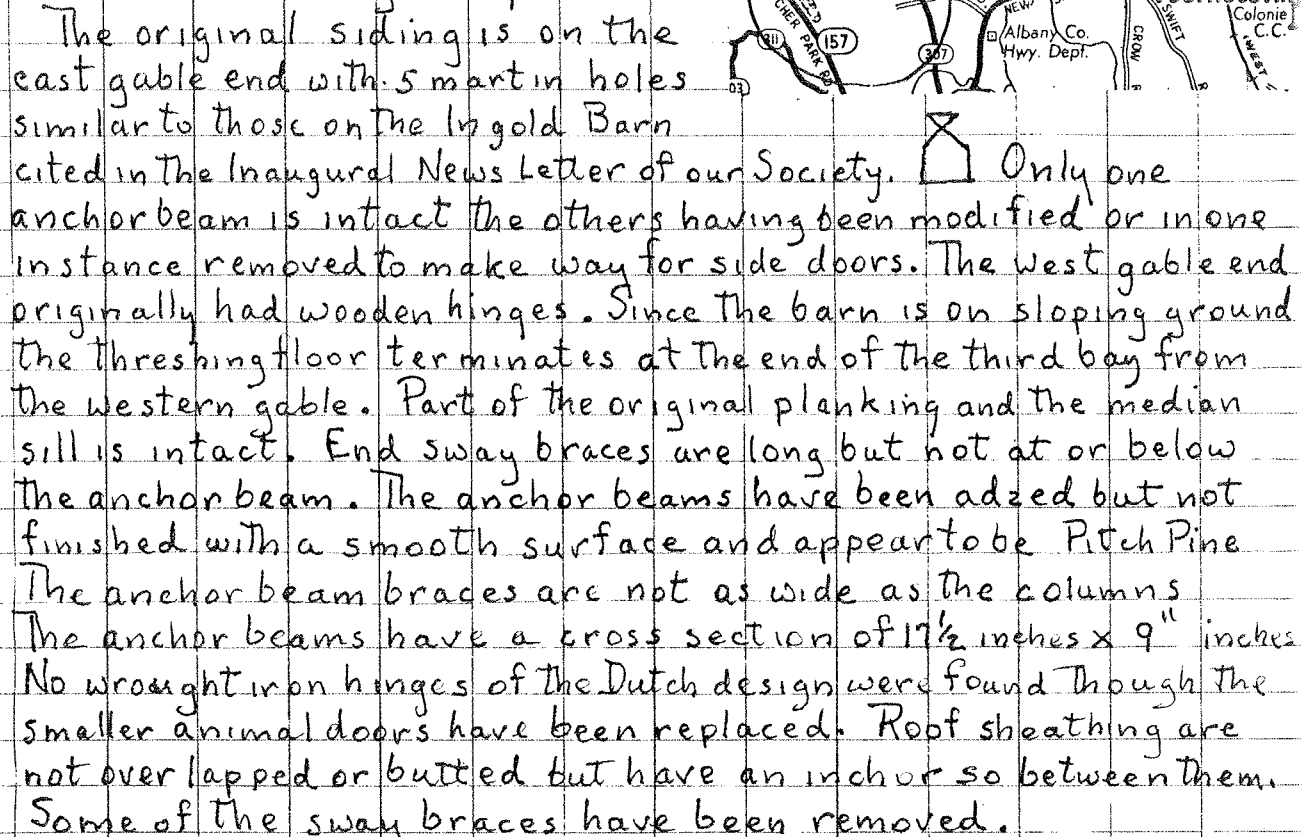 The original siding is on the
east gable end with 5 martin holes
similar to those on the Ingold Barn
cited in the Inaugural News Letter of our Society. Only one
anchorbeam is intact the others having been modified or in one
instance removed to make way for side doors. The west gable end
originally had wooden hinges. Since the barn is on sloping ground
the threshing floor terminates at the end of the third bay from
the western gable. Part of the original planking and the median
sill is intact. End sway braces are long but not at or below
the anchorbeam. The anchor beams have been adzed but not
finished with a smooth surface and appear to be Pitch Pine
The anchor beam braces are not as wide as the columns
The anchor beams have a cross section of 17½ inches x 9" inches
No wrought iron hinges of the Dutch design were found Though the
smaller animal doors have been replaced. Roof sheathing are
not over lapped or butted but have an inch or so between them.
Some of the sway braces have been removed.
CHER PARK RD
157
307
NEW
Albany Co.
Hwy. Dept.
CROW
SWIFT
WEST
Colonie
C.C.